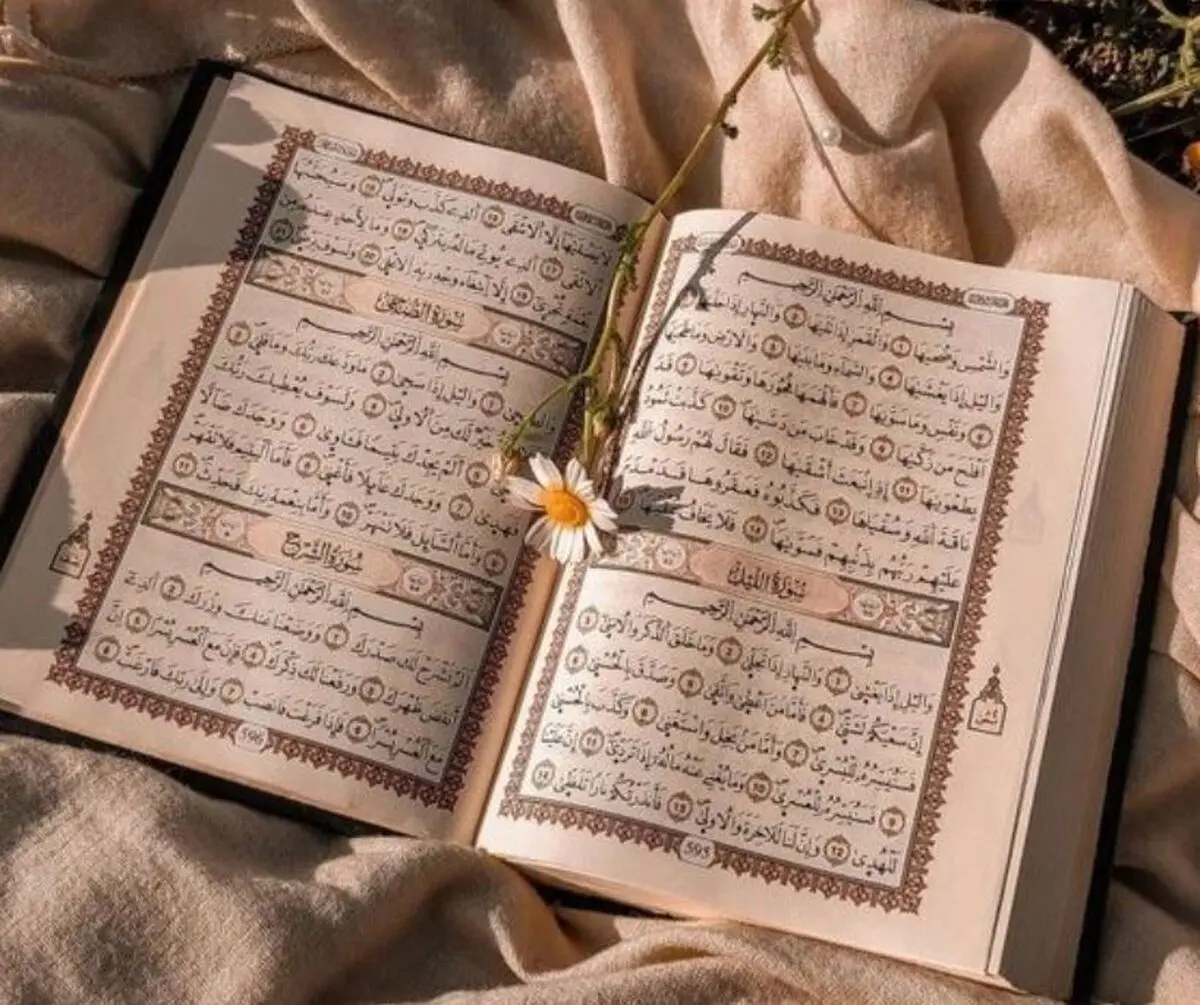 بِسْمِ اللَّهِ الرَّحْمَٰنِ الرَّحِيمِ
وَالشَّمْسِ وَضُحَيٰهَا 1 وَالْقَمَرِ إِذَا تَلَيٰهَا 2 وَالنَّهَارِ إِذَا جَلَّيٰهَا
وَالَيْلِ إِذَا يَغْشَيٰهَا 4 وَالسَّمَآءِ وَمَا بَنَيٰهَا 5 وَالَارْضِ وَمَا طَحَيٰهَا
6 وَنَفْسٍ وَمَا سَوَّيٰهَا 7 فَأَلْهَمَهَا فُجُورَهَا وَتَقْوَيٰهَا 8 قَدَ
اَفْلَحَ مَن زَكَّيٰهَا 9 وَقَدْ خَابَ مَن دَسَّيٰهَا 10 كَذَّبَتْ ثَمُودُ
بِطَغْوَيٰهَا 11 إِذِ اِنۢبَعَثَ أَشْقَيٰهَا 12 فَقَالَ لَهُمْ رَسُولُ اللَّهِ
نَاقَةَ اَللَّهِ وَسُقْيَٰهَا 13 فَكَذَّبُوهُ فَعَقَرُوهَا فَدَمْدَمَ
عَلَيْهِمْ رَبُّهُم بِذَنۢبِهِمْ فَسَوَّيٰهَا 14 فَلَا يَخَافُ عُقْبَٰهَا
سُورَةُ اَلَّيْلِ
بِسْمِ اللَّهِ الرَّحْمَٰنِ الرَّحِيمِ
وَالَيْلِ إِذَا يَغْشَىٰ 1 وَالنَّهَارِ إِذَا تَجَلَّىٰ 2 وَمَا خَلَقَ اَلذَّكَرَ وَالُانثَىٰ 3
إِنَّ سَعْيَكُمْ لَشَتَّىٰ 4 فَأَمَّا مَنَ اَعْطَىٰ وَاتَّقَىٰ 5 وَصَدَّقَ بِالْحُسْنَىٰ 6
فَسَنُيَسِّرُهُۥ لِلْيُسْرَىٰ 7 وَأَمَّا مَنۢ بَخِلَ وَاسْتَغْنَىٰ 8 وَكَذَّبَ بِالْحُسْنَىٰ
9 فَسَنُيَسِّرُهُۥ لِلْعُسْرَىٰ 10 وَمَا يُغْنِے عَنْهُ مَالُهُۥٓ إِذَا تَرَدَّىٰٓ 11 إِنَّ عَلَيْنَا
لَلْهُدَىٰ 12 وَإِنَّ لَنَا لَلَاخِرَةَ وَالُاولَىٰ 13 فَأَنذَرْتُكُمْ نَارًا تَلَظَّىٰ 14
ثُمُن
595
لَا يَصْلَيٰهَآ إِلَّا اَلَاشْقَى 15 اَلذِے كَذَّبَ وَتَوَلَّىٰ 16 وَسَيُجَنَّبُهَا
اَلَاتْقَى 17 اَلذِے يُوتِے مَالَهُۥ يَتَزَكَّىٰ 18 وَمَا لِأَحَدٍ عِندَهُۥ مِن
نِّعْمَةٖ تُجْزَىٰٓ 19 إِلَّا اَبْتِغَآءَ وَجْهِ رَبِّهِ اِلَاعْلَىٰ 20 وَلَسَوْفَ يَرْضَىٰ 21
سُورَةُ اَلضُّحَىٰ
بِسْمِ اللَّهِ الرَّحْمَٰنِ الرَّحِيمِ
وَالضُّحَىٰ 1 وَالَيْلِ إِذَا سَجَىٰ 2 مَا وَدَّعَكَ رَبُّكَ وَمَا قَلَىٰ 3
خَيْرٌ لَّكَ مِنَ اَلُاولَىٰ 4 وَلَسَوْفَ يُعْطِيكَ رَبُّكَ
5 أَلَمْ يَجِدْكَ يَتِيمًا فَـَٔاوَىٰ 6 وَوَجَدَكَ ضَآلًّا
فَهَدَىٰ 7 وَوَجَدَكَ عَآئِلًا فَأَغْنَىٰ 8 فَأَمَّا اَلْيَتِيمَ فَلَا تَقْهَرْ
9 وَأَمَّا اَلسَّآئِلَ فَلَا تَنْهَرْ 10 وَأَمَّا بِنِعْمَةِ رَبِّكَ فَحَدِّثْ 11
سُورَةُ اَلشَّرْحِ
بِسْمِ اللَّهِ الرَّحْمَٰنِ الرَّحِيمِ
أَلَمْ نَشْرَحْ لَكَ صَدْرَكَ 1 وَوَضَعْنَا عَنكَ وِزْرَكَ 2 اَلذِےٓ
أَنقَضَ ظَهْرَكَ 3 وَرَفَعْنَا لَكَ ذِكْرَكَ 4 فَإِنَّ مَعَ اَلْعُسْرِ يُسْرًا 5 اِنَّ
مَعَ اَلْعُسْرِ يُسْرًا 6 فَإِذَا فَرَغْتَ فَانصَبْ 7 وَإِلَىٰ رَبِّكَ فَارْغَب 8
596